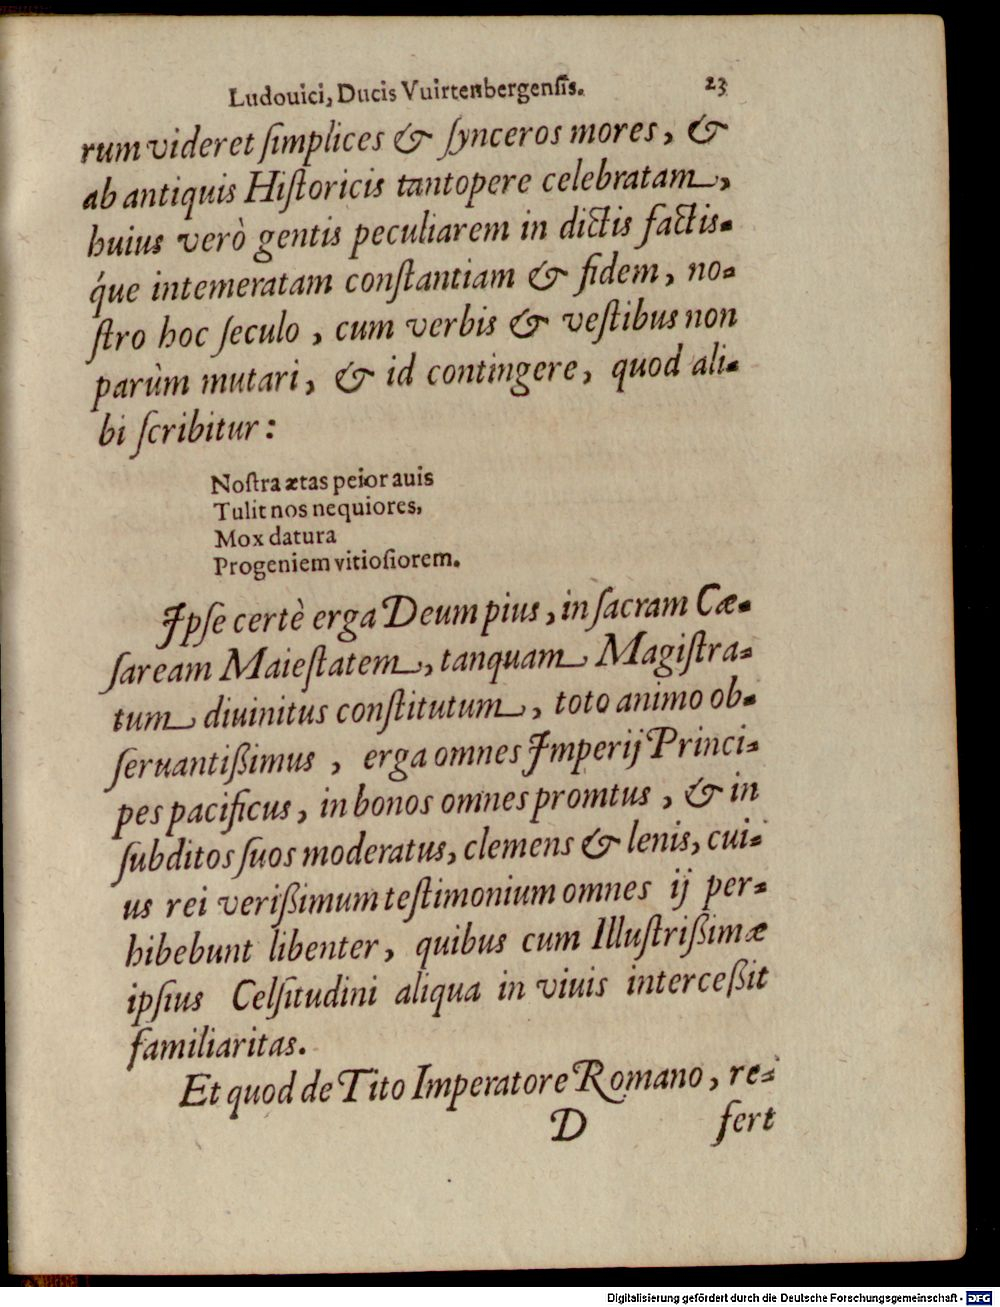 Ludouici, Ducis Vuirtenbergensis. 23
rum videret ſimplices & ſynceros mores, &
ab antiquis Hiſtoricis tantopere celebratam,
huius verò gentis peculiarem in dictis factis-
q́ue intemeratam conſtantiam & fidem, no-
ſtro hoc ſeculo, cum verbis & veſtibus non
parùm mutari, & id contingere, quod ali-
bi ſcribitur:
Noſtra ætas peior auis
Tulit nos nequiores,
Mox datura
Progeniem vitioſiorem.
Ipſe certè erga Deum pius, in ſacram Cæ-
ſaream Maieſtatem, tanquam Magiſtra-
tum diuinitus conſtitutum, toto animo ob-
ſeruantißimus, erga omnes Imperij Princi-
pes pacificus, in bonos omnes promtus, & in
ſubditos ſuos moderatus, clemens & lenis, cui-
us rei verißimum teſtimonium omnes ij per-
hibebunt libenter, quibus cum Illuſtrißimæ
ipſius Celſitudini aliqua in viuis interceßit
familiaritas.
Et quod de Tito Imperatore Romano, re-
D fert
Digitalisierung gefördert durch die Deutsche Forschungsgemeinschaft - DFG